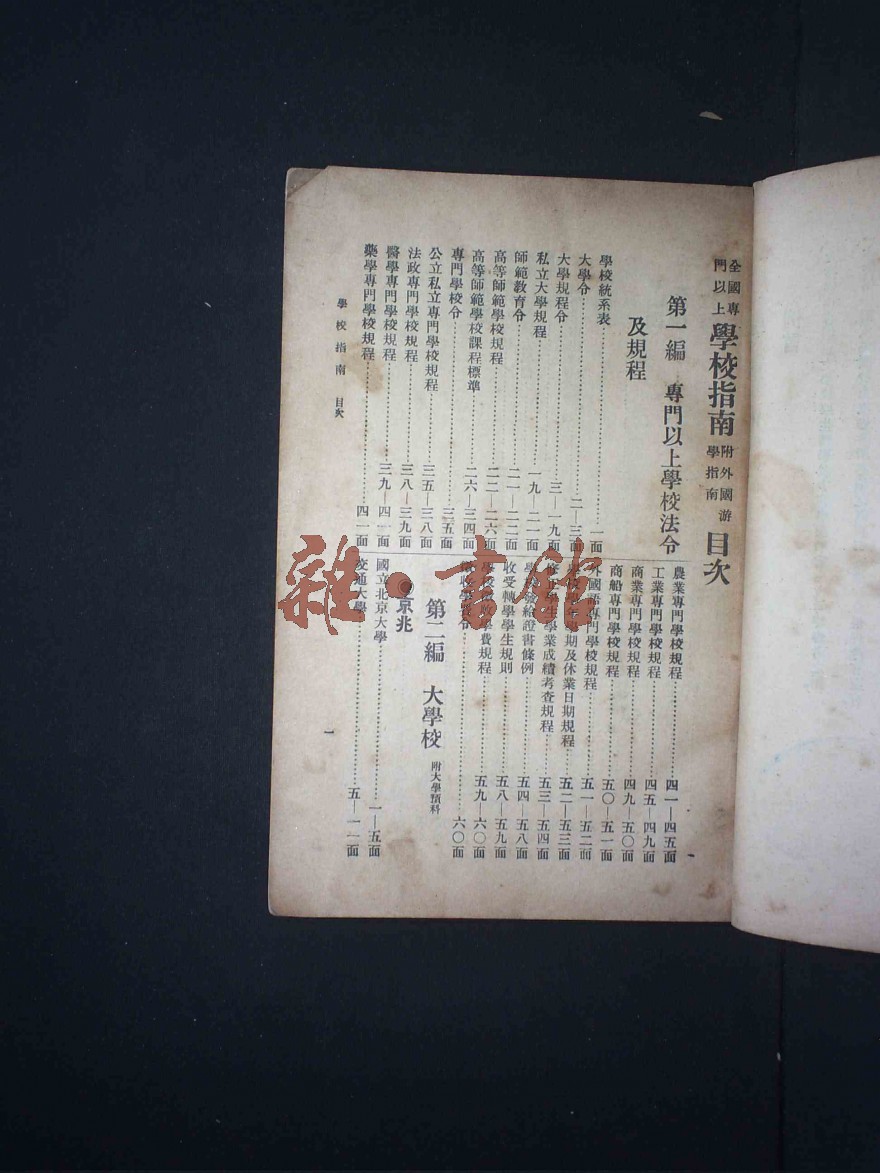 全國專門以上學校指南附外國游學指南目次
第一編　專門以上學校法令
及規程
學校統系表……一面
大學令……二—三面
大學規程令……三—一九面
私立大學規程……一九—二一面
師範教育令……二一—二二面
高等師範學校規程……二二—二六面
高等師範學校課程標準……二六—三四面
專門學校令……三五面
公立私立專門學校規程……三五—三八面
法政專門學校規程……三八—三九面
醫學專門學校規程……三九—四一面
藥學專門學校規程……四一面
農業專門學校規程……四一—四五面
工業專門學校規程……四五—四九面
商業專門學校規程……四九—五〇面
商船專門學校規程……五〇—五一面
外國語專門學校規程……五一—五二面
學期及休業日期規程……五二—五三面
學生學業成績考查規程……五三—五四面
給證書條例……五四—五八面
收受轉學學生規則……五八—五九面
學校徵收學費規程……五九—六〇面
六〇面
第二編　大學校　附大學預科
◉京兆
國立北京大學……一—五面
交通大學……五—一一面
學校指南　目次
一
雜·書館